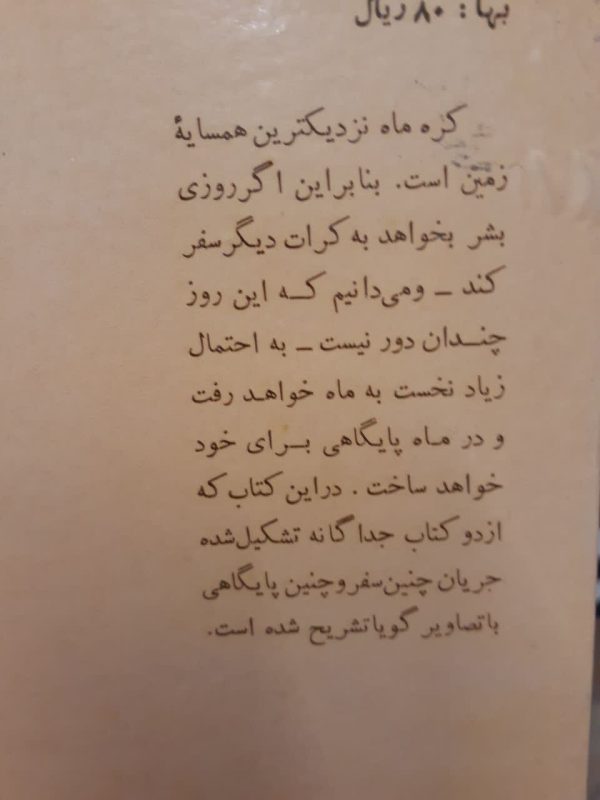 بها: ۸۰ ریال
کره ماه نزدیکترین همسایهٔ
زمین است. بنابراین اگر روزی
بشر بخواهد به کرات دیگر سفر
کند ــ و می‌دانیم کــه این روز
چنــدان دور نیست ــ به احتمال
زیاد نخست به ماه خواهـد رفت
و در مـاه پایگاهی بــرای خود
خواهد ساخت. در این کتاب که
از دو کتاب جداگانه تشکیل‌شده
جریان چنین‌سفر و چنین پایگاهی
با تصاویر گویا تشریح شده است.